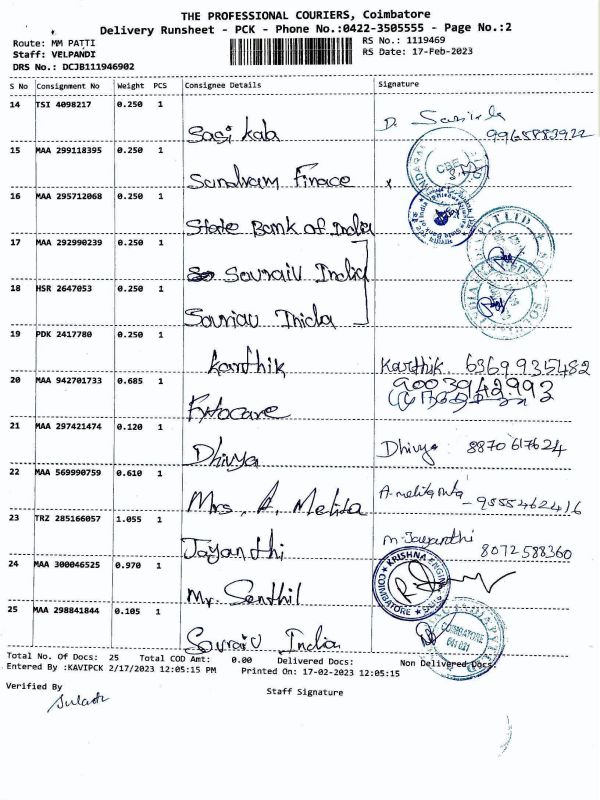 THE PROFESSIONAL COURIERS, Coimbatore
Delivery Runsheet - PCK - Phone No.:0422-3505555 - Page No.:2
Route: MM PATTI
RS No.: 1119469
Staff: VELPANDI
RS Date: 17-Feb-2023
DRS No.: DCJB111946902
S No Consignment No Weight PCS Consignee Details Signature
14 TSI 4098217 0.250 1
Sasi kala D. Sasirela 9965883922
15 MAA 299118395 0.250 1
Sundram Finace
16 MAA 295712068 0.250 1
State Bank of India
17 MAA 292990239 0.250 1
Souraiu India
18 HSR 2647053 0.250 1
Souriau India
19 PDK 2417780 0.250 1
Karthik Karthik. 6369935482
20 MAA 942701733 0.685 1
Fytocare 9003942993
21 MAA 297421474 0.120 1
Dhivya Dhivya 8870617624
22 MAA 569990759 0.610 1
Mrs. A. Melita 9555462416
23 TRZ 285166057 1.055 1
Jayandhi M. Jayandhi 8072588360
24 MAA 300046525 0.970 1
Mr. Senthil KRISHNA ENGINE COIMBATORE
25 MAA 298841844 0.105 1
Souraiu India COIMBATORE 641 021
Total No. Of Docs: 25 Total COD Amt: 0.00 Delivered Docs: Non Delivered Docs:
Entered By :KAVIPCK 2/17/2023 12:05:15 PM Printed On: 17-02-2023 12:05:15
Verified By
Staff Signature